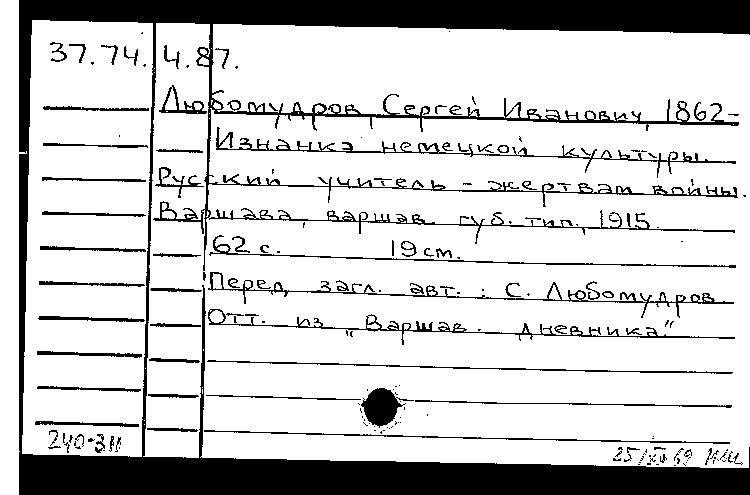 37.74. 4.87.
Любомудров, Сергей Иванович, 1862-
Изнанка немецкой культуры.
Русский учитель - жертвам войны.
Варшава, варшав. губ. тип., 1915.
62 с. 19 см.
Перед загл. авт.: С. Любомудров.
Отт. из „Варшав. дневника."
240-3И
25/XI 69